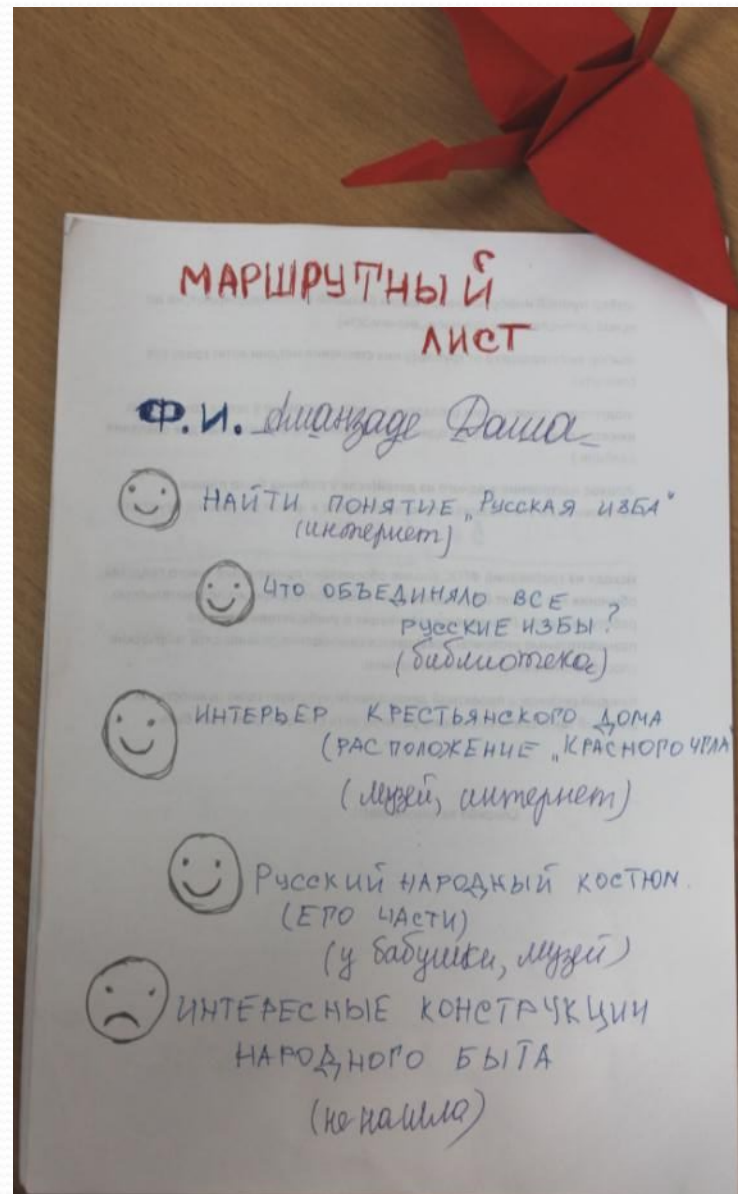 МАРШРУТНЫЙ
ЛИСТ
Ф.И. Аманзаде Даша
НАЙТИ ПОНЯТИЕ „РУССКАЯ ИЗБА"
(интернет)
ЧТО ОБЪЕДИНЯЛО ВСЕ
РУССКИЕ ИЗБЫ?
(библиотека)
ИНТЕРЬЕР КРЕСТЬЯНСКОГО ДОМА
(РАСПОЛОЖЕНИЕ „КРАСНОГО УГЛА"
(музей, интернет)
РУССКИЙ НАРОДНЫЙ КОСТЮМ.
(ЕГО ЧАСТИ)
(у бабушки, музей)
ИНТЕРЕСНЫЕ КОНСТРУКЦИИ
НАРОДНОГО БЫТА
(не нашла)